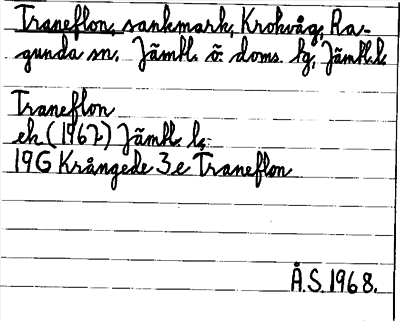 Traneflon, sankmark, Krokvåg, Ra-
gunda sn. Jämtl. ö. doms. lg, Jämtl. l.
Traneflon
ek (1967) Jämtl. l.
19G Krångede 3e Traneflon
Å.S. 1968.